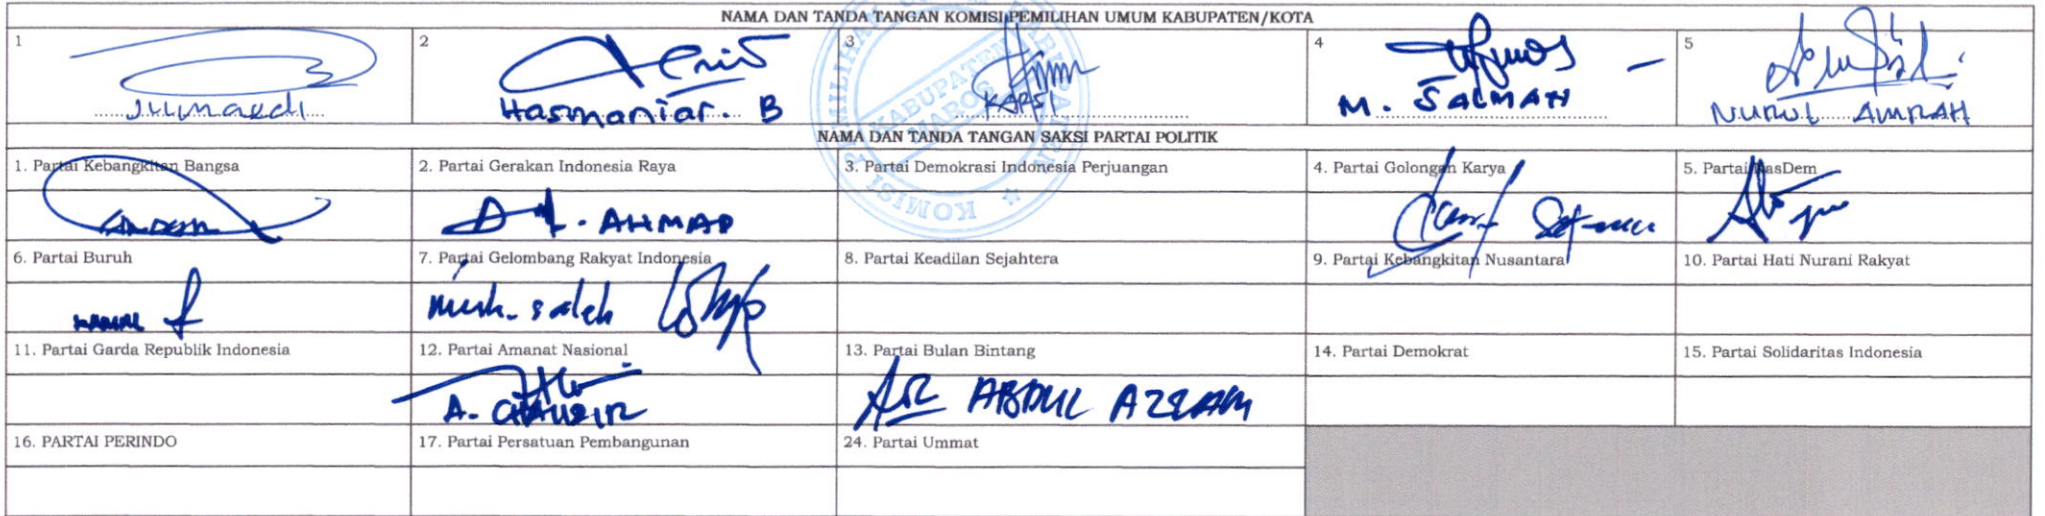 NAMA DAN TANDA TANGAN KOMISI PEMILIHAN UMUM KABUPATEN/KOTA
1 2 3 4 5
Jumaedi Hasmaniar. B KARSI M. SALMAN NURUL AMRAH
KABUPATEN MAROS
KOMISI PEMILIHAN
NAMA DAN TANDA TANGAN SAKSI PARTAI POLITIK
1. Partai Kebangkitan Bangsa 2. Partai Gerakan Indonesia Raya 3. Partai Demokrasi Indonesia Perjuangan 4. Partai Golongan Karya 5. Partai NasDem
AHMAD
6. Partai Buruh 7. Partai Gelombang Rakyat Indonesia 8. Partai Keadilan Sejahtera 9. Partai Kebangkitan Nusantara 10. Partai Hati Nurani Rakyat
Muh. saleh
11. Partai Garda Republik Indonesia 12. Partai Amanat Nasional 13. Partai Bulan Bintang 14. Partai Demokrat 15. Partai Solidaritas Indonesia
A. ABDUL
16. PARTAI PERINDO 17. Partai Persatuan Pembangunan 24. Partai Ummat